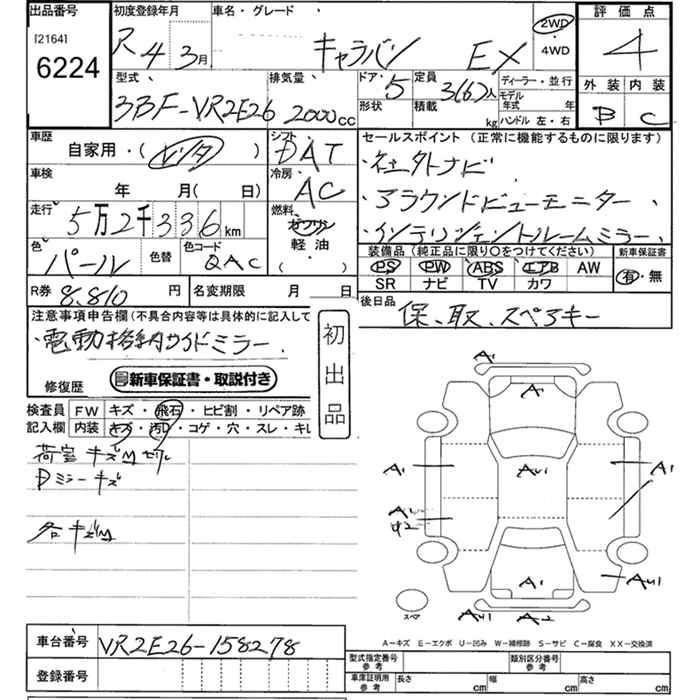 出品番号
[2164]
6224
初度登録年月
R 4 3月
車名・グレード
キャラバン EX
2WD
4WD
評価点
4
外装 内装
B C
型式
3BF-VR2E26
排気量
2000cc
ドア・
5
形状
定員
3(6)人
積載
kg
ディーラー・並行
モデル
年式 年
ハンドル 左・右
車歴
自家用・(レンタ)
シフト
DAT
セールスポイント(正常に機能するものに限ります)
・社外ナビ
・アラウンドビューモニター、
・インテリジェントルームミラー、
車検
年 月( 日)
冷房
AC
走行
5万2千336km
燃料
ガソリン
軽油
(・)
色
パール
色替
色コード
QAC
装備品(純正品に限り○をつけてください)
PS PW ABS エアB AW
SR ナビ TV カワ
新車保証書
有・無
R券
8,810円
名変期限 月 日
後日品
保、取、スペアキー
注意事項申告欄(不具合内容等は具体的に記入して
・電動格納サイドミラー、
修復歴
新車保証書・取説付き
初出品
検査員
記入欄
FW キズ・飛石・ヒビ割・リペア跡
内装 キズ・汚・コゲ・穴・スレ・キレ
荷室キズM
Dミラーキズ
各キズM
A1
A1
AU1
A1
A1
A1
A1
AU1
AU1
A2
スペア
A-キズ E-エクボ U-凹み W-補修跡 S-サビ C-腐食 XX-交換済
車台番号
VR2E26-158278
登録番号
型式指定番号
参考
類別区分番号
参考
車庫証明用
参考
長さ cm
幅 cm
高さ cm